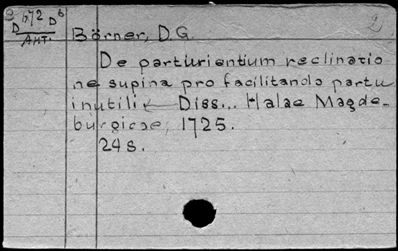 Börner, D.G.
De parturientium reclinatio
ne supina pro facilitando partu
inutili Diss... Halae Magde-
burgicae, 1725.
24 s.